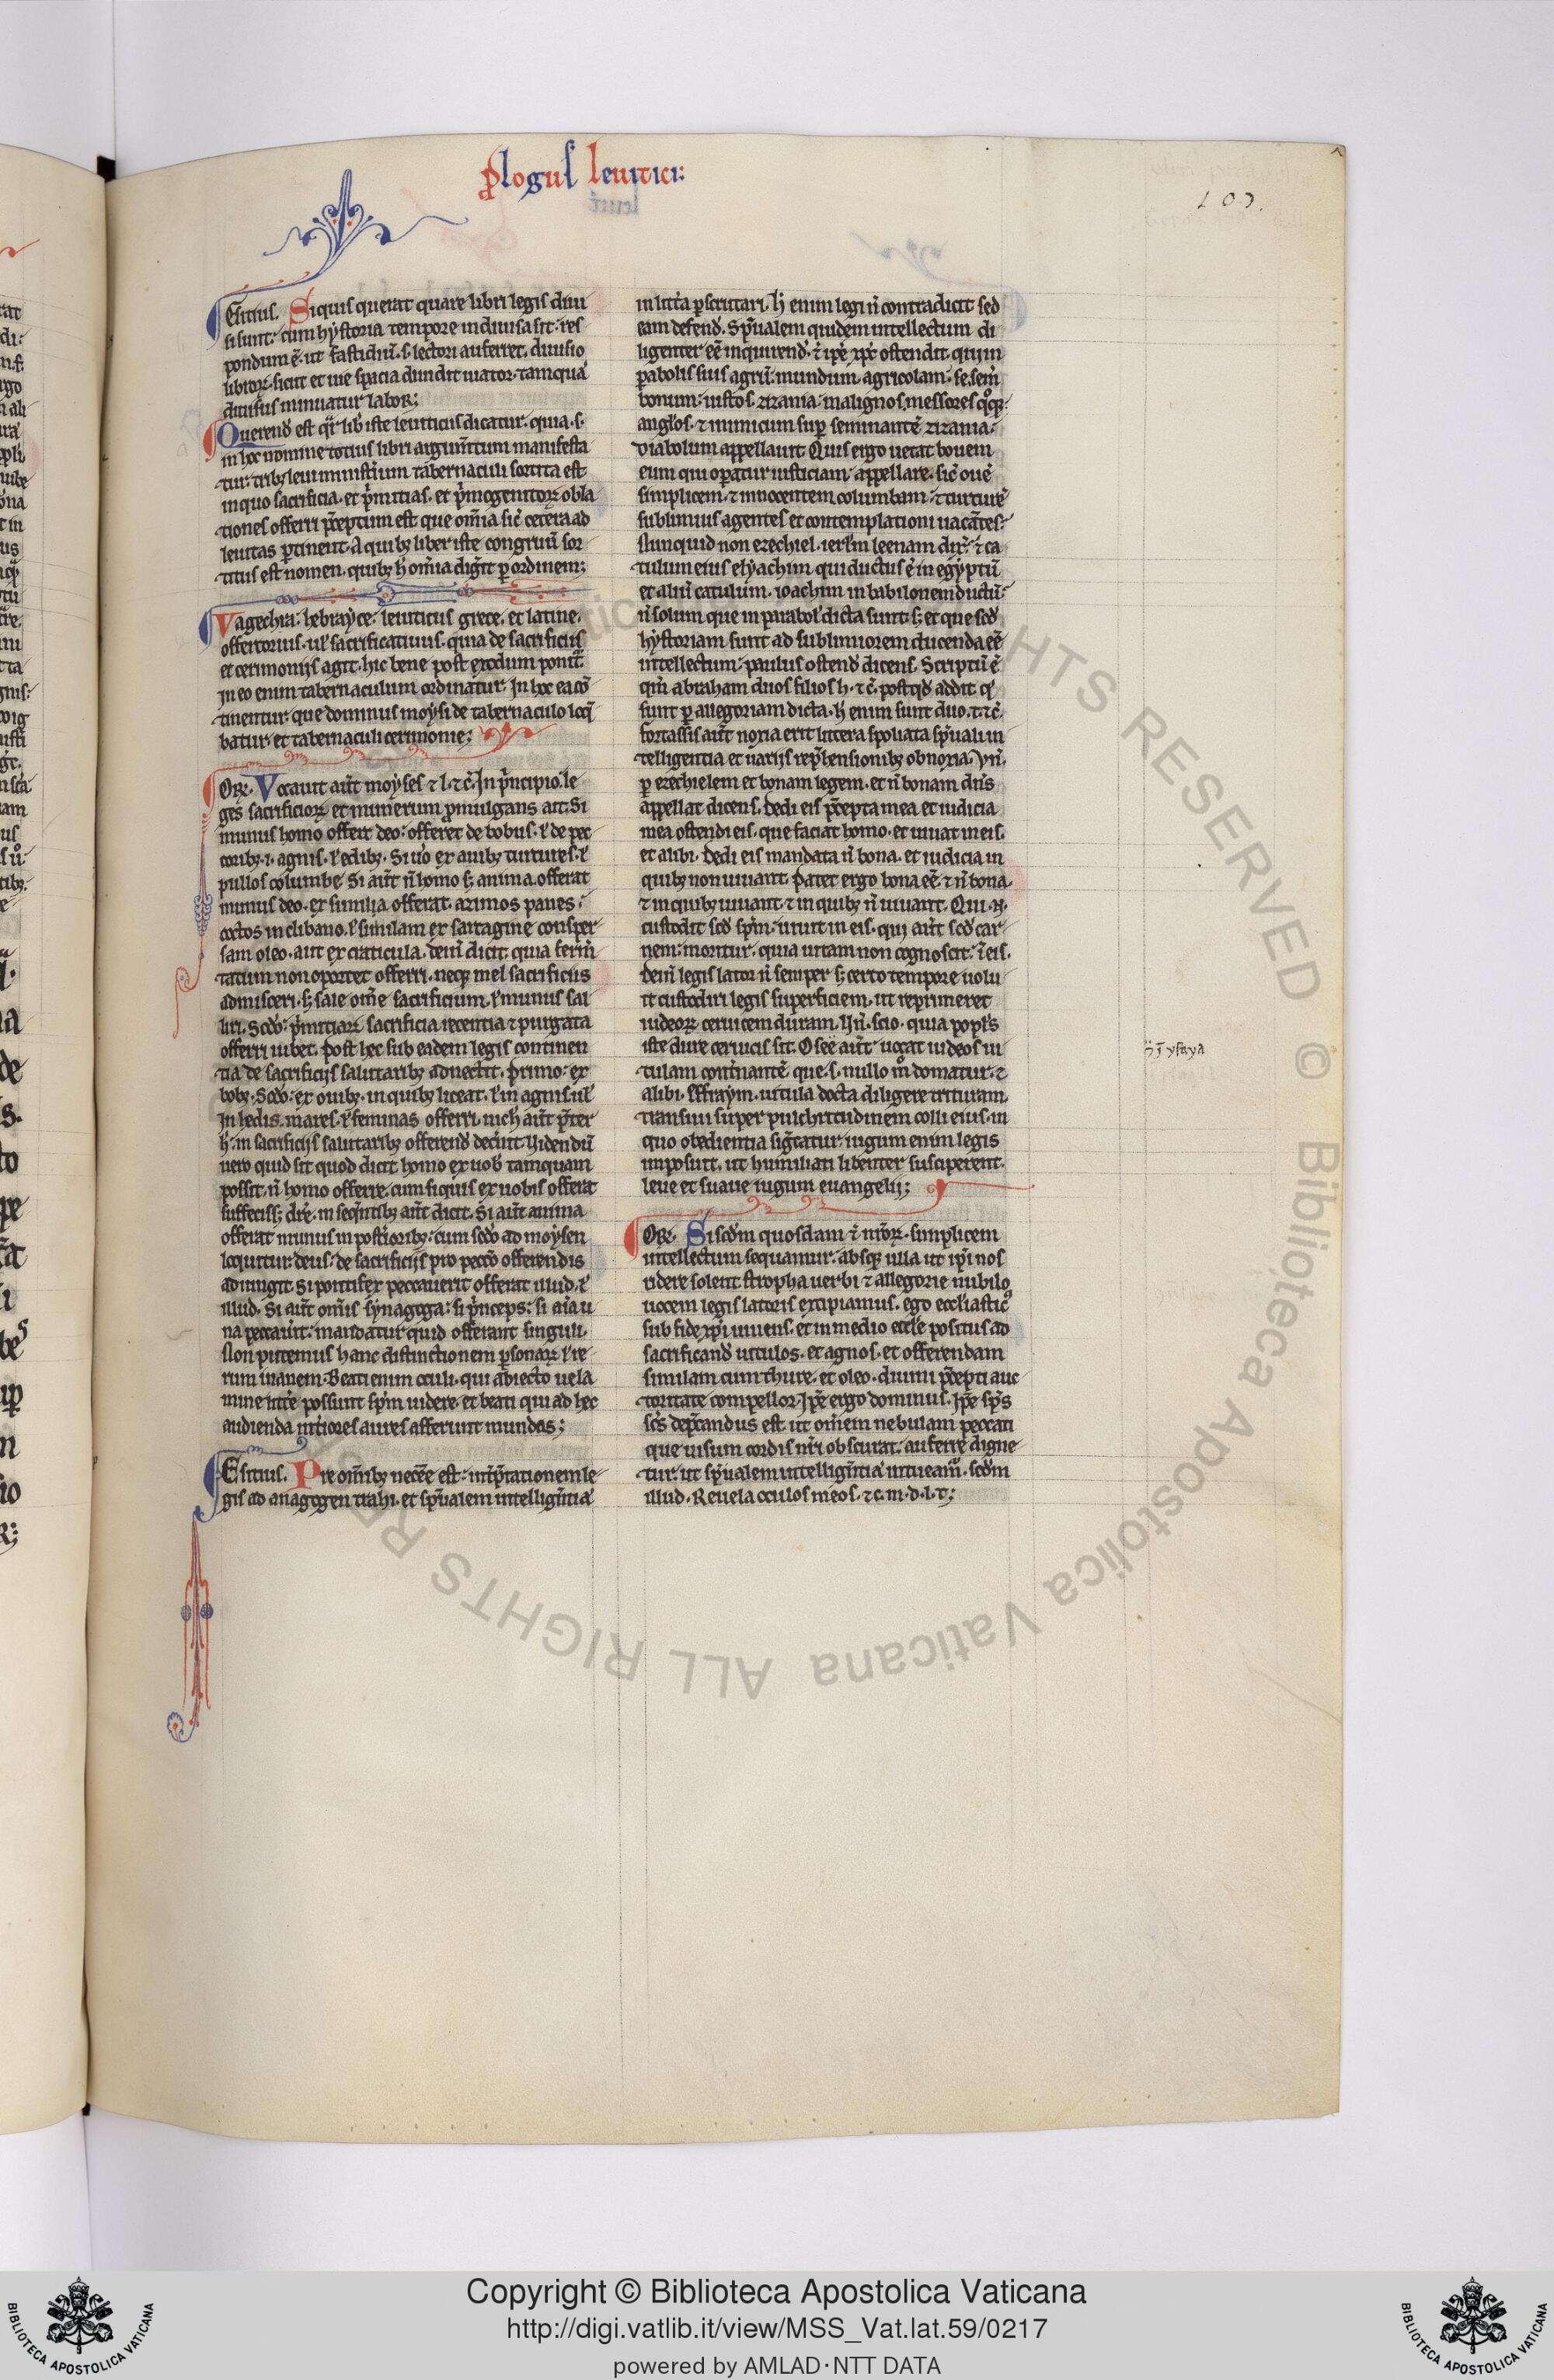 p̱logus leuitici:
103.
Esitius. Siquis querat quare libri legis diui
si sunt: cum hystoria tempore indiuisa sit: res
pondum ē. ut fastidiū. s. lectori auferret. diuisio
libroꝝ. sicut et uie spacia diuidit uiator. tamquā
diuisus minuatur labor:
Querend̄ est qr̄ lib̄ iste leuiticus dicatur. quia. s.
in hoc nomine totius libri argum̄tum manifesta
tur: tribꝫ leui ministium tabernaculi sortita est
in quo sacrificia. et p̄mitias. et p̄mogenitoꝝ obla
tiones offerri p̄ceptum est que om̄ia sic̄ cetera ad
leuitas ꝑtinent. A quibꝫ liber iste congruū sor
titus est nomen. quibꝫ h̄ om̄ia digerit ꝑ ordinem:
Vagechra: hebrayce: leuiticus grece. et latine.
offertorius. ul̄ sacrificatiuus. quia de sacrificiis
et cerimoniis agit. hic bene post exodum ponit̄.
In eo enim tabernaculum ordinatur. In hoc ea cō
tinentur que dominus moysi de tabernaculo locq̄
batur et tabernaculi cerimonie:
ORꝫ. Vocauit aūt moyses ⁊ l. ⁊ c̄. In p̄ncipio le
ges sacrificioꝝ et munerum ꝓmulgans ait. Si
munus homo offert deo: offeret de bobus. ł de pec
coribꝫ. i. agnis. ł edibꝫ. Si uo ex auibꝫ turtures. ł
pullos columbe. Si aūt n̄ homo sꝫ anima. offerat
munus deo. ex simila offerat. azimos panes.
coctos in clibano. ł similam ex sartagine consper
sam oleo. aut ex craticula. dein̄ dicit. quia ferm̄
tatum non oportet offerri. neqꝫ mel sacrificiis
admisceri. sꝫ sale om̄e sacrificium. ł munus sal
liri. Scd̄o: p̄mitiaꝝ sacrificia recentia ⁊ purgata
offerri iubet. Post hec sub eadem legis continen
tia de sacrificiis salutaribꝫ adnectit. Primo: ex
bobꝫ. Scd̄o: ex ouibꝫ. in quibꝫ liceat. ł in agnis ul̄
In hedis. mares. ł feminas offerri. nich̄ aūt p̄ter
h̄. in sacrificiis salutaribꝫ offerend̄ decr̄nit. Uidendū
uero quid sit quod dicit homo ex uob̄ tamquam
possit. n̄ homo offerre. cum siquis ex uobis offerat
suffecissꝫ dr̄e. in seqn̄tibꝫ aūt dicit. Si aūt anima
offerat munus in post̄ioribꝫ: cum scd̄o ad moysen
loquitur deus: de sacrificiis pro pecc̄o offerendis
adiungit. Si pontifex peccauerit offerat illud. ł
illud. Si aūt om̄is synagoga: si p̄nceps: si aīa u
na peccauit: mandatur quid offerant singuli.
Non putemus hanc distinctionem ꝑsonaꝝ ł re
rum inanem. Beati enim oculi. qui abiecto uela
mine litt̄e possunt sp̄m uidere. et beati qui ad hec
audienda int̄iores aures afferunt mundas:
Esitius. Pre om̄ibꝫ necc̄e est: int̄p̄tationem le
gis ad anagogen trahi. et sp̄ualem intellign̄tiā
in litt̄a ꝑscrutari. h̄ enim legi n̄ contradicit sed
eam defend̄. Sp̄ualem quidem intellectum di
ligenter eē inquirend̄. ⁊ ip̄e xp̄c ostendit. qui in
ꝑabolis suis agrū: mundum. agricolam. se. sem̄
bonum: iustos. zizania: malignos. messores q̊qꝫ:
angl̄os. ⁊ inimicum suꝑ seminantē zizania:
diabolum appellauit. Quis ergo uetat bouem
eum qui oꝑatur iusticiam. appellare. sic̄ ouē
simplicem. ⁊ innocentem columbam. ⁊ turturē
sublimius agentes et contemplationi uacātes:
Nunquid non ezechiel. ierl̄m leenam dix̄. ⁊ ca
tulum eius elyachim. qui ductus ē in egyptū
et aliū catulum. ioachim in babilonem ductū:
n̄ solum que in parabol̄ dicta sunt sꝫ et que scd̄
hystoriam sunt ad sublimiorem ducenda eē
intellectum: paulus ostend̄ dicens. Scriptū ē
qm̄ abraham duos filios h. ⁊ c̄. postqd̄ addit. q̄
sunt ꝑ allegoriam dicta. h̄ enim sunt duo. t. ⁊ c̄.
fortassis aūt noxia erit littera spoliata sp̄uali in
telligentia et uariis rep̄hensionibꝫ obnoxia. Vn̄.
ꝑ ezechielem et bonam legem. et n̄ bonam dn̄s
appellat dicens. Dedi eis p̄cepta mea et iudicia
mea ostendi eis. que faciat homo. et uiuat in eis.
et alibi. Dedi eis mandata n̄ bona. et iudicia in
quibꝫ non uiuant. Patet ergo bona eē ⁊ n̄ bona.
⁊ in quibꝫ uiuant. ⁊ in quibꝫ n̄ uiuant. Qui .n.
custodit scd̄ sp̄m: uiuit in eis. qui aūt scd̄ car
nem: moritur. quia uitam non cognoscit. ī eis.
dein̄ legis lator n̄ semper sꝫ certo tempore uolu
it custodiri legis superficiem. ut reprimeret
iudeoꝝ ceruicem duram. Un̄. scio. quia popl̄s
iste dure ceruicis sit. Osee aūt uocat iudeos ui
tulam contn̄antē. que. s. nullo m̊ domatur. ⁊
alibi. Effraym. uitula docta diligere trituram.
transiui super pulchritudinem colli eius. in
quo obedientia siḡcatur. iugum enim legis
imposuit. ut humiliati libenter susciperent.
leue et suaue iugum euangelij:
ō ī ysaya
ORꝫ. Si scd̄m quosdam ⁊ nr̄oꝝ. simplicem
intellectum sequamur. absqꝫ ulla ut ip̄i nos
ridere solent stropha uerbi ⁊ allegorie nubilo
uocem legis latoris excipiamus. ego eccl̄iastic̄
sub fide xp̄i uiuens. et in medio eccl̄e positus ad
sacrificand̄ uitulos. et agnos. et offerendam
similam cum thure. et oleo. diuini p̄cepti auc
toritate compellor. Ip̄e ergo dominus. Ip̄e sp̄s
sc̄s dep̄candus est. ut om̄em nebulam peccati
que uisum cordis nr̄i obscurat. auferre digne
tur. ut sp̄ualem intellign̄tiā intueam̄. scd̄m
illud. Reuela oculos meos. ⁊ c. m. d. l. t:
Copyright © Biblioteca Apostolica Vaticana
http://digi.vatlib.it/view/MSS_Vat.lat.59/0217
powered by AMLAD·NTT DATA
BIBLIOTECA APOSTOLICA VATICANA
BIBLIOTECA APOSTOLICA VATICANA